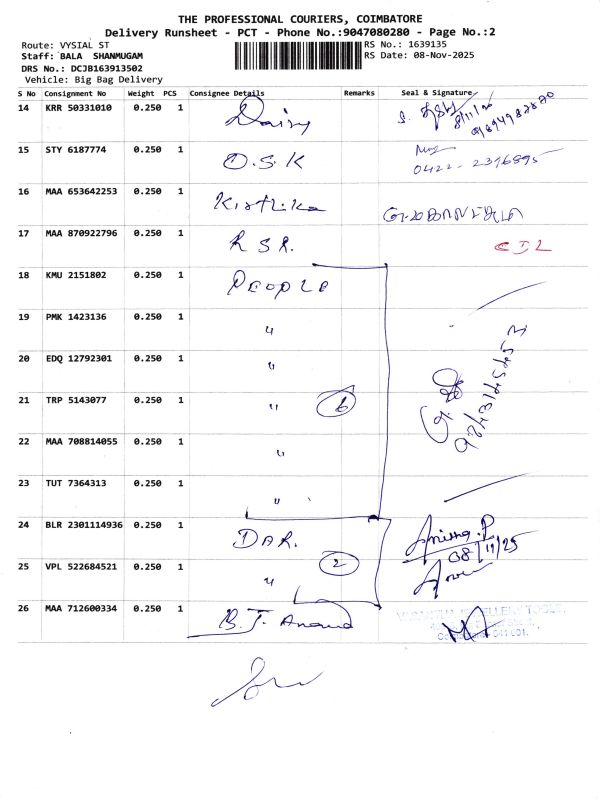 THE PROFESSIONAL COURIERS, COIMBATORE
Delivery Runsheet - PCT - Phone No.:9047080280 - Page No.:2
Route: VYSIAL ST
RS No.: 1639135
Staff: BALA SHANMUGAM
RS Date: 08-Nov-2025
DRS No.: DCJB163913502
Vehicle: Big Bag Delivery
S No Consignment No Weight PCS Consignee Details Remarks Seal & Signature
14 KRR 50331010 0.250 1 Daisy
15 STY 6187774 0.250 1 O.S.K 0422-2316895
16 MAA 653642253 0.250 1 Kirthika
17 MAA 870922796 0.250 1 R S R. CIL
18 KMU 2151802 0.250 1 PEOPLE
19 PMK 1423136 0.250 1 "
20 EDQ 12792301 0.250 1 "
21 TRP 5143077 0.250 1 " 6
22 MAA 708814055 0.250 1 "
23 TUT 7364313 0.250 1 "
24 BLR 2301114936 0.250 1 DAR. Anitha.P
08/11/25
25 VPL 522684521 0.250 1 " 2
26 MAA 712600334 0.250 1 B.J. Anand